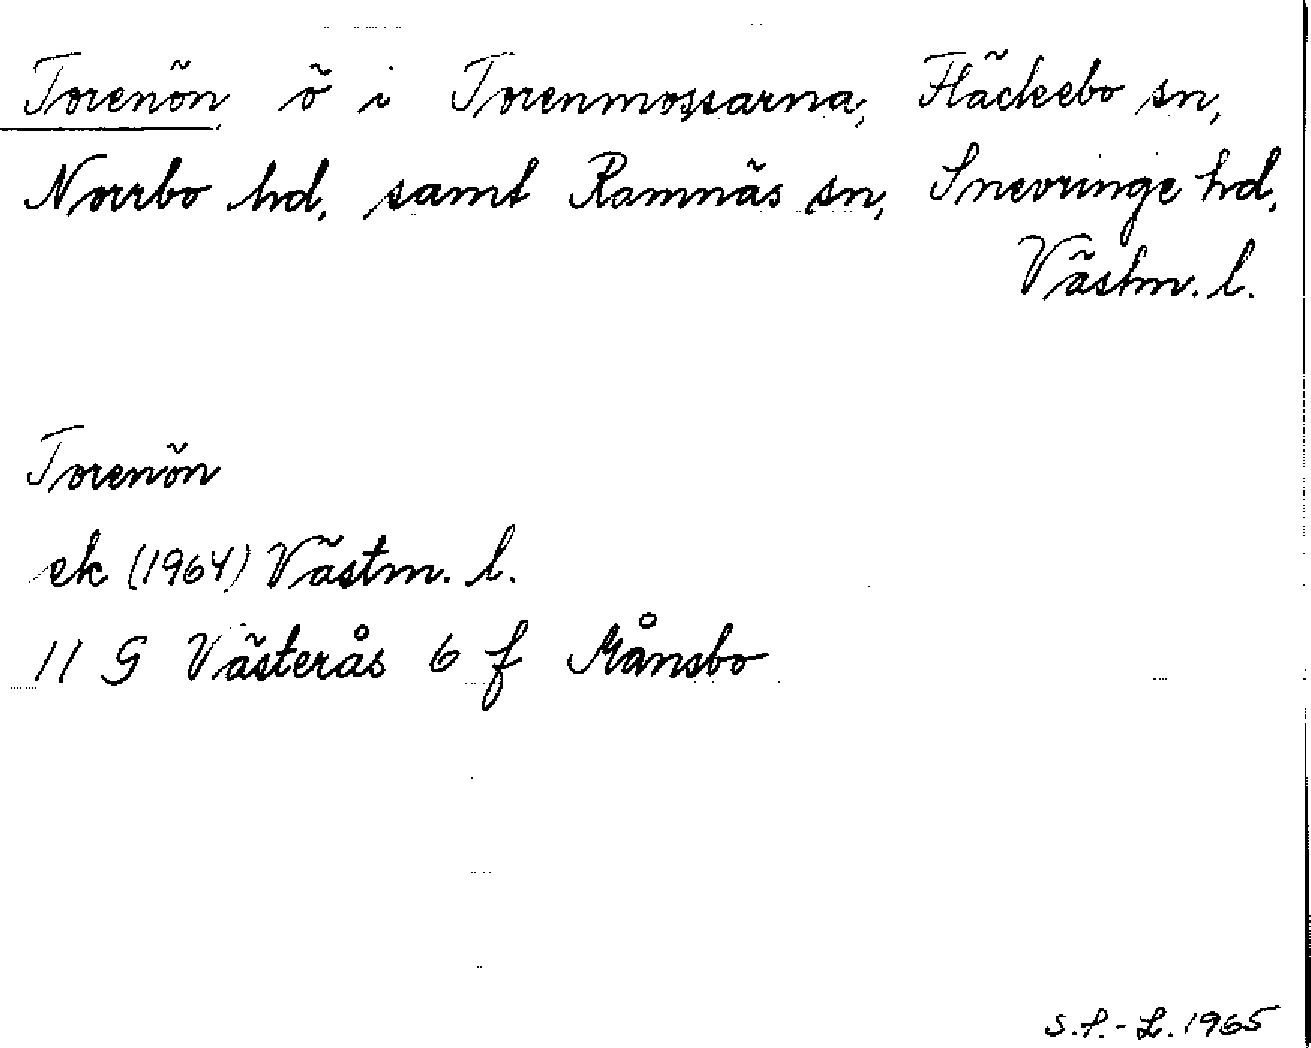 Torenön, ö i Torenmossarna, Fläckebo sn,
Norrbo hd, samt Ramnäs sn, Snevringe hd,
Västm. l.
Torenön
ek (1964) Västm. l.
11 G Västerås 6 f Månsbo
S.F.-L. 1965